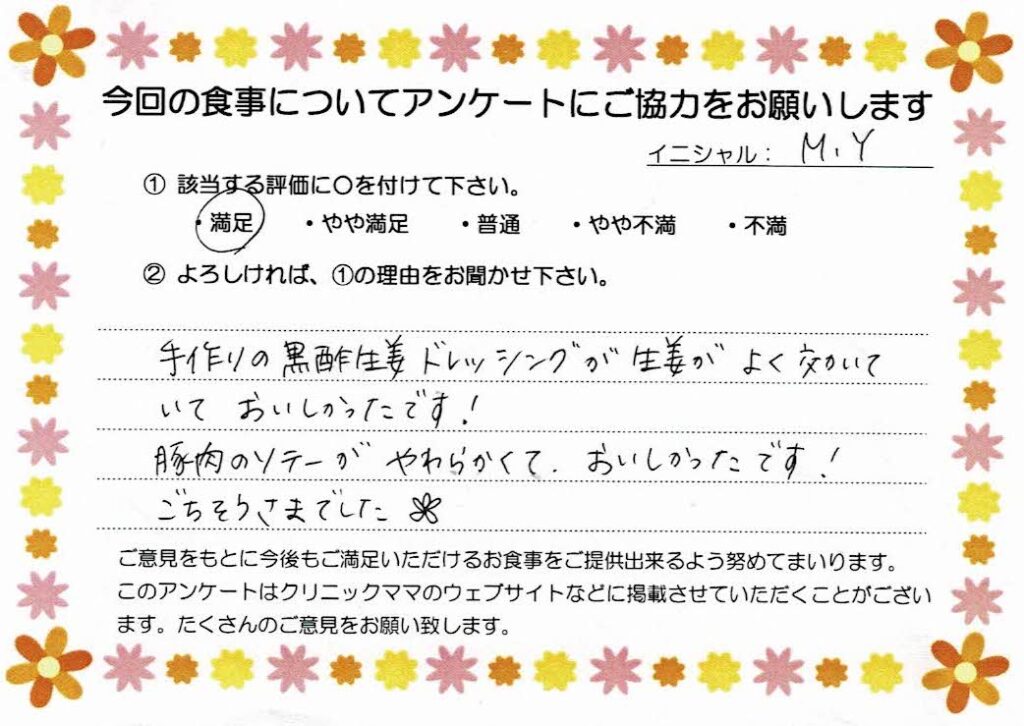 今回の食事についてアンケートにご協力をお願いします
イニシャル： M.Y
① 該当する評価に○を付けて下さい。
・満足 ・やや満足 ・普通 ・やや不満 ・不満
② よろしければ、①の理由をお聞かせ下さい。
手作りの黒酢生姜ドレッシングが生姜がよく効いて
いて おいしかったです！
豚肉のソテーが やわらかくて、おいしかったです！
ごちそうさまでした
ご意見をもとに今後もご満足いただけるお食事をご提供出来るよう努めてまいります。
このアンケートはクリニックママのウェブサイトなどに掲載させていただくことがござい
ます。たくさんのご意見をお願い致します。